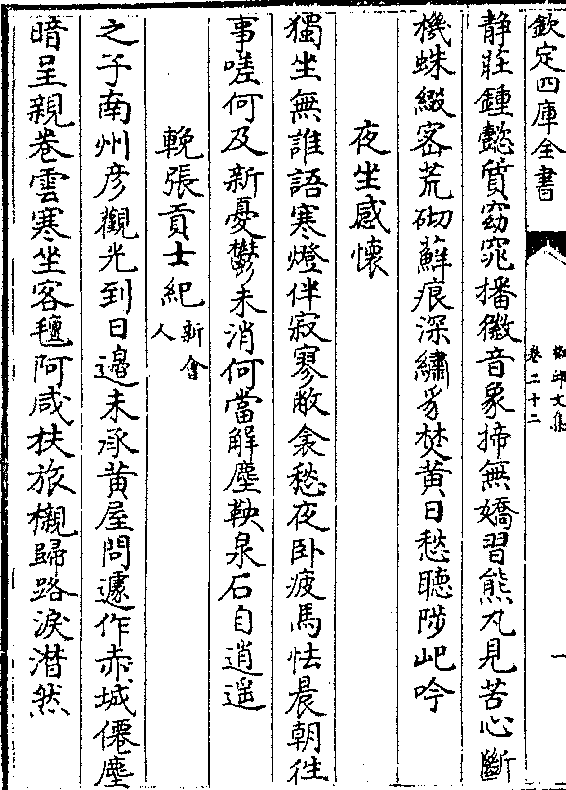 欽定四庫全書
卷二十二
一
静莊鍾懿質窈窕播徽音象揥無嬌習熊丸見苦心斷
機蛛綴宻荒砌蘚痕深繡豸焚黄日愁聽陟屺吟
夜坐感懷
獨坐無誰語寒燈伴寂寥敝衾愁夜卧疲馬怯晨朝徃
事嗟何及新憂鬱未消何當解塵鞅泉石自逍遥
輓張貢士紀新㑹人
之子南州彦觀光到日邉未承黄屋問遽作赤城僊塵
暗呈親卷雲寒坐客氊阿咸扶旅櫬歸路淚潸然